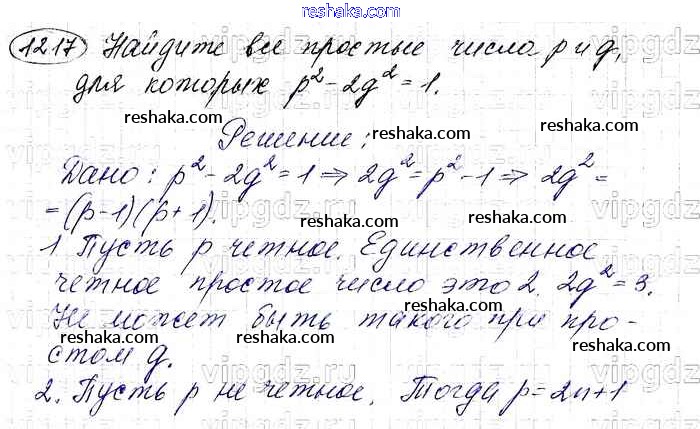 reshaka.com
1217 Найдите все простые числа p и q,
для которых p² - 2q² = 1.
reshaka.com
Решение:
reshaka.com
Дано: p² - 2q² = 1 ⇒ 2q² = p² - 1 ⇒ 2q² =
= (p-1)(p+1).
reshaka.com
1 Пусть p четное. Единственное
четное простое число это 2. 2q² = 3.
reshaka.com
Не может быть такого при про-
стом q.
reshaka.com
2. Пусть p не четное. Тогда p = 2n+1
reshaka.com